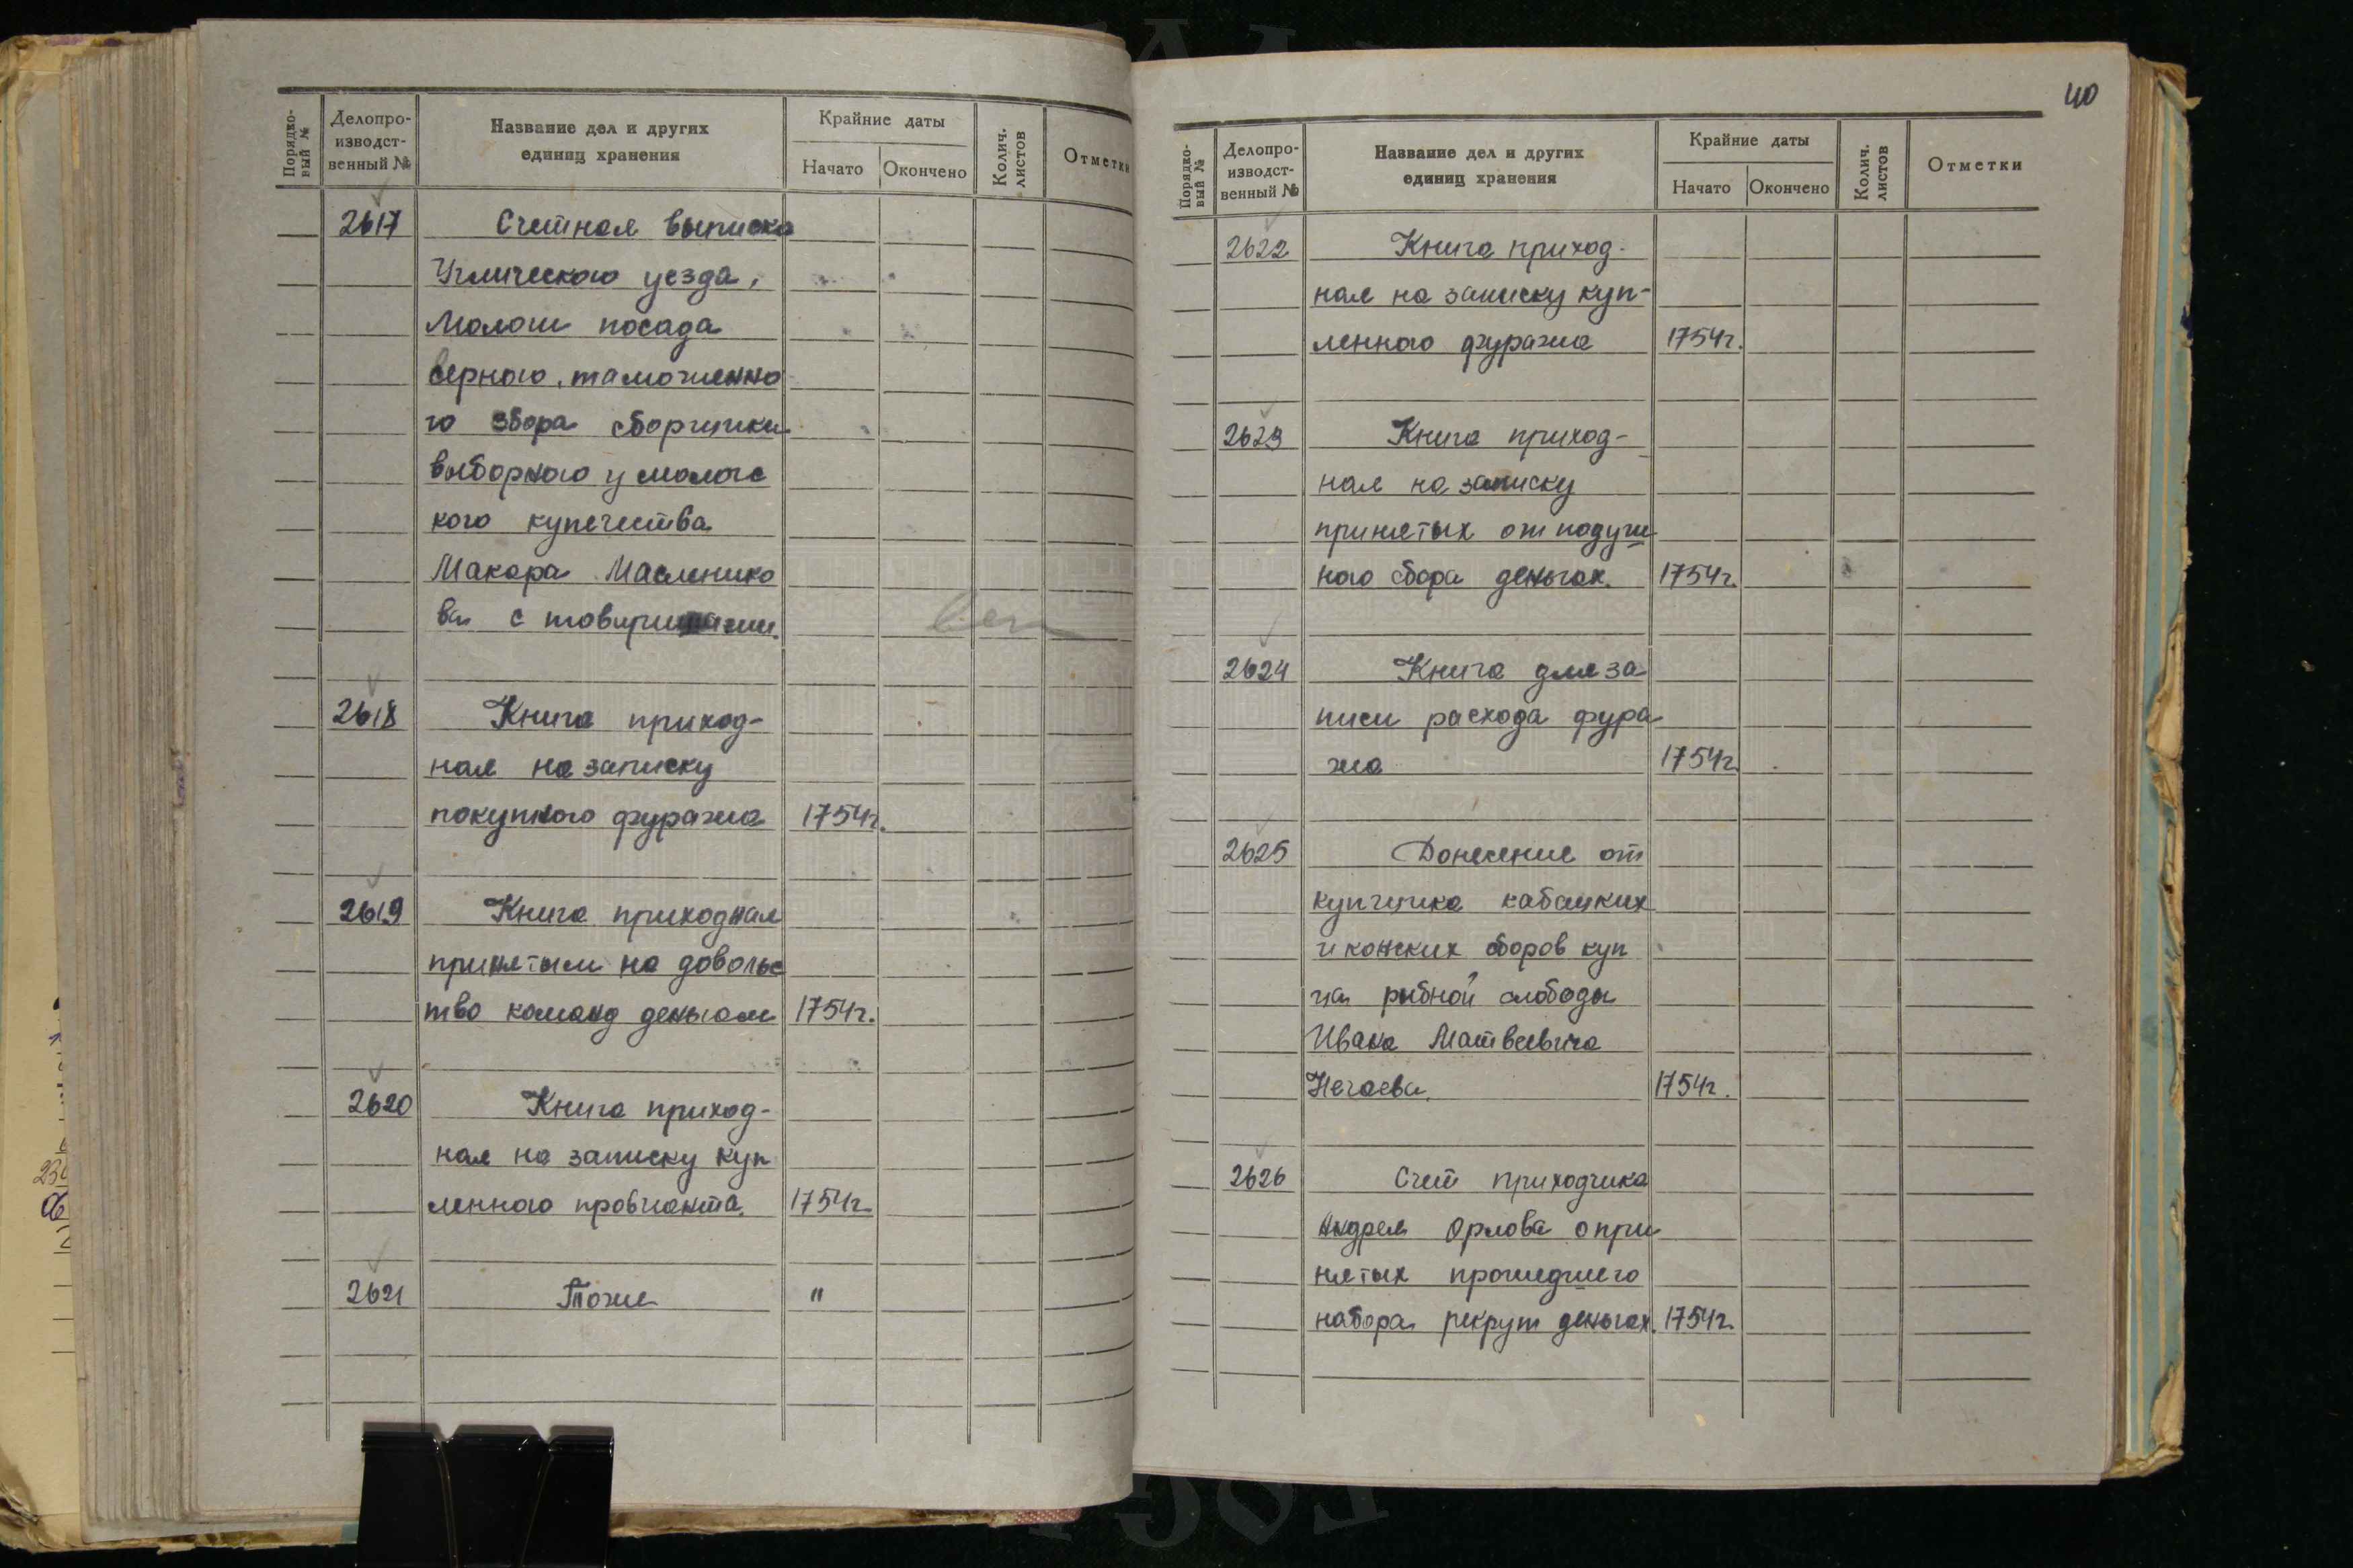 Порядко-
вый №
Делопро-
изводст-
венный №
Название дел и других
единиц хранения
Крайние даты
Начато
Окончено
Колич.
листов
Отметки
2617
Счетная выписка
Угличского уезда,
Мологи посада
верного, таможенно
го збора сборщика
выборного у молога с
кого купечества
Макара Масленико
ва с товарищами.
2618
Книга приход-
ная на записку
покупного фуража 1754г.
2619
Книга приходная
принятым на довольс
тво команд деньгам 1754г.
2620
Книга приход-
ная на записку куп
ленного провианта. 1754г.
2621
Тоже "
40
Порядко-
вый №
Делопро-
изводст-
венный №
Название дел и других
единиц хранения
Крайние даты
Начато
Окончено
Колич.
листов
Отметки
2622
Книга приход-
ная на записку куп-
ленного фуража 1754г.
2623
Книга приход-
ная на записку
принятых от подуш
ного сбора деньгах. 1754г.
2624
Книга для за
писи расхода фура
жа 1754г
2625
Донесение от
купчика кабацких
и конских сборов куп
ца рыбной слободы
Ивана Матвеевича
Нечаева. 1754г.
2626
Счет приходчика
Андрея Орлова о при
нятых прошедшего
набора рекрут деньгах. 1754г.